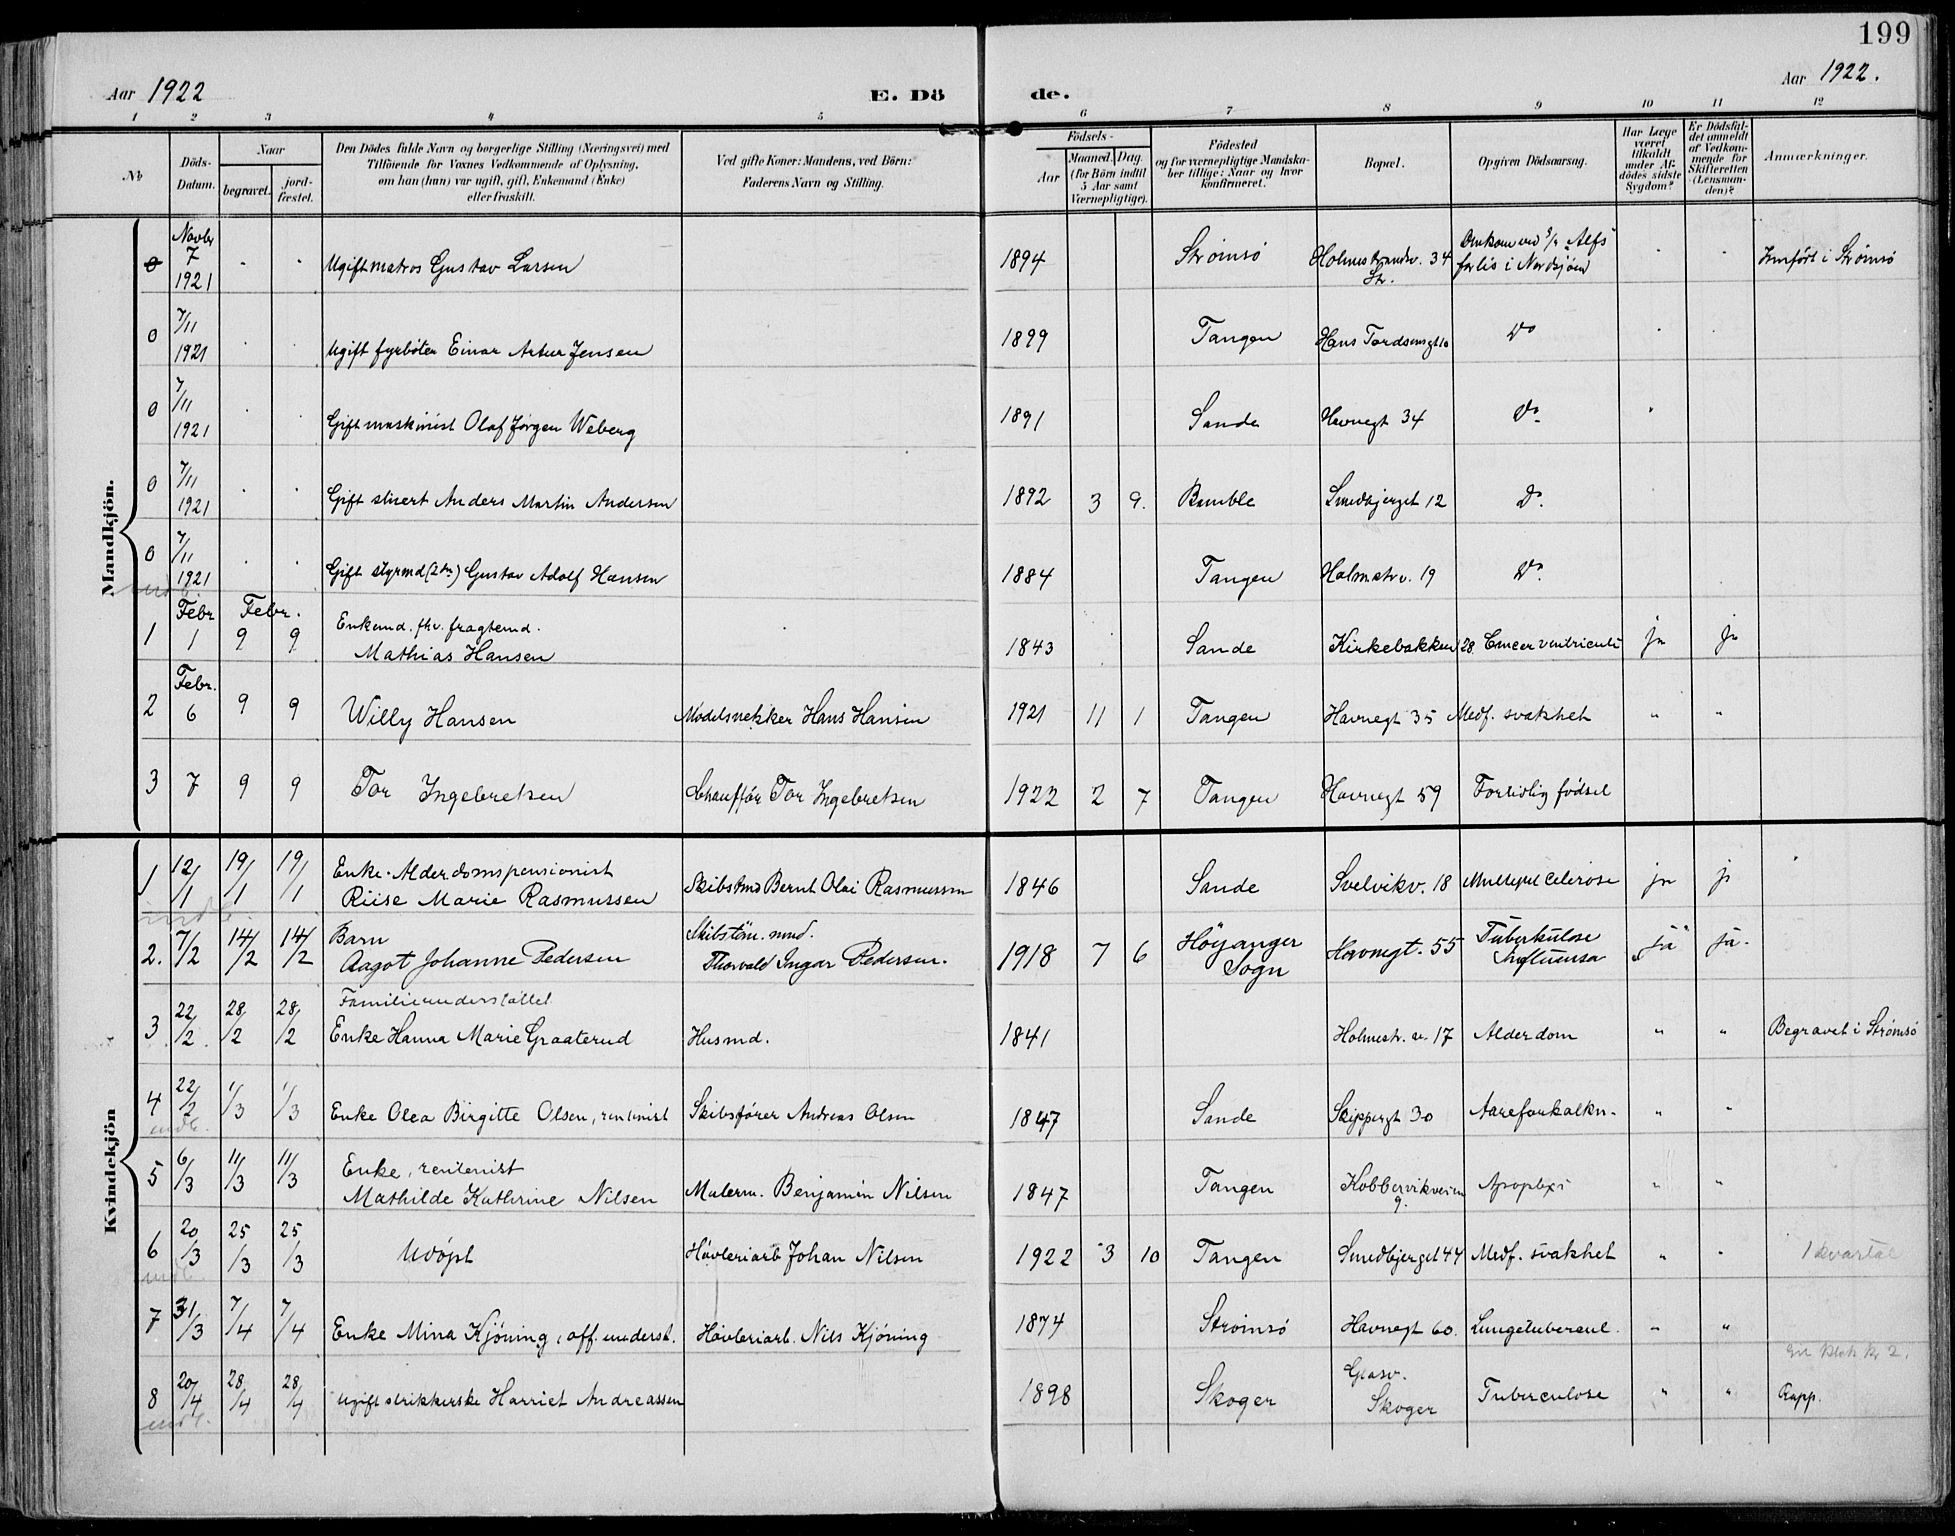 199
Aar 1922
E. Dö de.
Aar 1922.
1 2 3 4 5 6 7 8 9 10 11 12
№
Döds-Datum.
Naar
begravet.
jordfæstet.
Den Dödes fulde Navn og borgerlige Stilling (Næringsvei) med
Tilföiende for Voxnes Vedkommende af Oplysning,
om han (hun) var ugift, gift, Enkemand (Enke)
eller fraskilt.
Ved gifte Koner: Mandens, ved Börn:
Faderens Navn og Stilling.
Födsels-
Aar
Maaned. Dag.
(for Börn indtil
5 Aar samt
Værnepligtige).
Födested
og for værnepligtige Mandskaber tillige: Naar og hvor
konfirmeret.
Bopæl.
Opgiven Dödsaarsag.
Har Læge
været
tilkaldt
under Afdödes sidste
Sygdom?
Er Dödsfaldet anmeldt
af Vedkommende for
Skifteretten
(Lensmanden)?
Anmærkninger.
Mandkjön.
0 Novbr 7 1921 Ugift matros Gustav Larsen 1894 Strømsø Holmestrandsv. 34 Str. Omkom ved S/S Alfs forlis i Nordsjøen Innført i Strømsø
0 7/11 1921 Ugift fyrböter Einar Artur Jensen 1899 Tangen Hans Tordsensgt 10 Do
0 7/11 1921 Gift maskinist Olaf Jörgen Weberg 1891 Sande Havnegt 34 Do
0 7/11 1921 Gift stuert Anders Martin Andersen 1892 3 9. Bamble Smedbjerget 12 Do.
0 7/11 1921 Gift styrmd (2den) Gustav Adolf Hansen 1884 Tangen Holmestr v. 19 Do.
indb.
1 Febr 1 Febr. 9 9 Enkemd. fhv. fragtemd.
Mathias Hansen 1843 Sande Kirkebakken 28. Cancer ventriculi ja ja
2 Febr. 6 9 9 Willy Hansen Modelsnekker Hans Hansen 1921 11 1 Tangen Havnegt 35 Medf. svakhet " "
3 7 9 9 Tor Ingebretsen Chauffør Tor Ingebretsen 1922 2 7 Tangen Havnegt 59 Fortidlig födsel
Kvindekjön
1 12/1 19/1 19/1 Enke. Alderdomspensionist
Riise Marie Rasmussen Skibstmd Bernt Olai Rasmussen 1846 Sande Svelvikv. 18 Multipel Cclerose ja ja
indb.
2. 7/2 14/2 14/2 Barn
Aagot Johanne Pedersen Skibstöm. mnd.
Thorvald Ingar Pedersen. 1918 7 6 Höyanger Sogn Havnegt. 55 Tuberkulose Influensa "ja" ja.
3 22/2. 28/2 28/2 Familieunderstöttet
Enke Hanna Marie Graaterud Husmd. 1841 Holmestr. v. 17 Alderdom " " Begravet i Strømsø
4 22/2 1/3 1/3 Enke Olea Birgitte Olsen, rentenist Skibsförer Andreas Olsen 1847 Sande Skippergt 30 Aareforkalkn. " "
indb.
5 6/3 11/3 11/3 Enke, rentenist
Mathilde Kathrine Nilsen Malerm. Benjamin Nilsen 1847 Tangen Kobbervikveien 9. Apoplexi " "
6 20/3 25/3 25/3 Udöpt Hövleriarb Johan Nilsen 1922 3 10 Tangen Smedbjerget 44 Medf. svakhet " " 1 kvartal
indb.
7 31/3 7/4 7/4 Enke Mina Kjöning, off. underst. Hövleriarb. Nils Kjöning 1874 Strømsö Havnegt 60. Lungetubercul. " "
8 20/4 28/4 28/4 Ugift strikkerske Harriet Andreassen 1898 Skoger Glasv. Skoger Tuberculose " " Rapp.
indb.